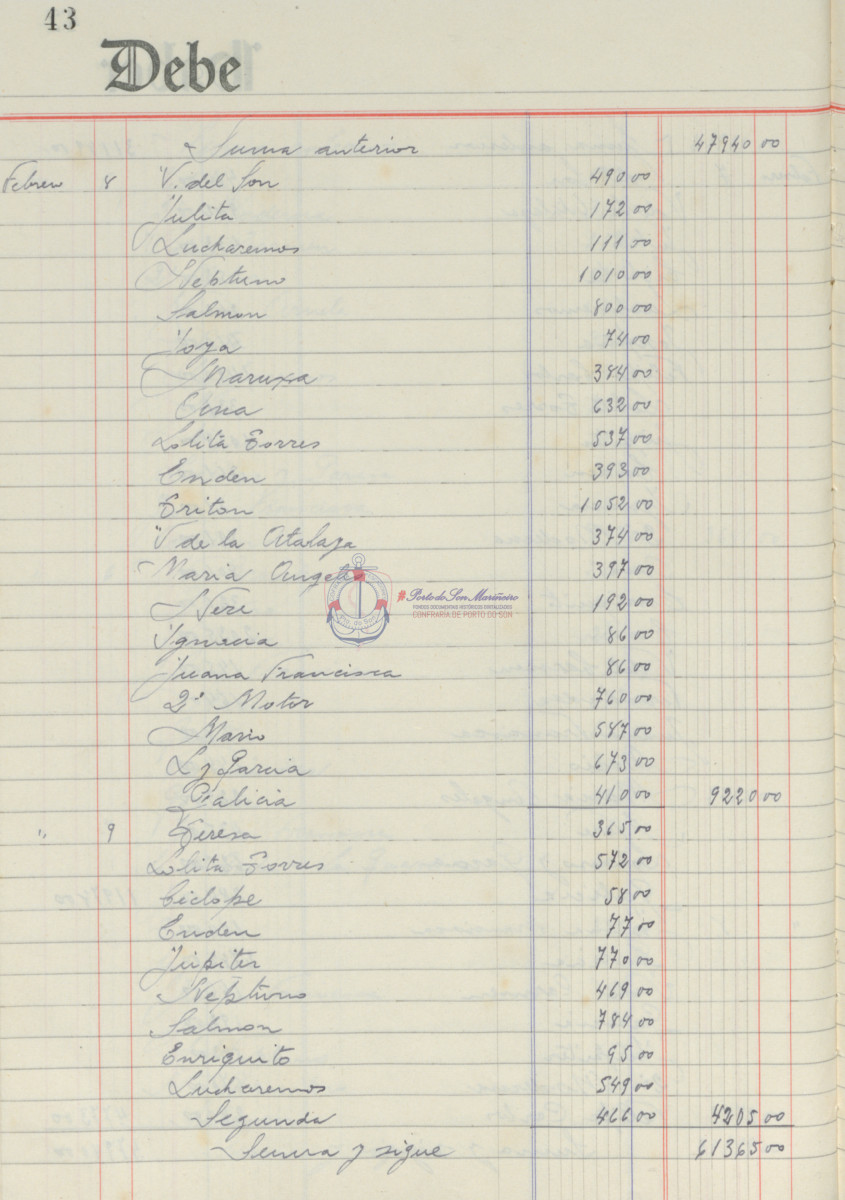 43
Debe
Suma anterior 47940 00
Febrero 8 V. del Son 490 00
Julita 172 00
Lucharemos 111 00
Neptuno 1010 00
Salmon 800 00
Joya 74 00
Maruxa 384 00
632 00
Lolita Torres 537 00
Enden 393 00
Triton 1052 00
V de la Atalaya 374 00
Maria Angeles 397 00
192 00
Ignacia 86 00
Juana Francisca 86 00
2º Motor 760 00
Mario 587 00
L y Garcia 673 00
Galicia 410 00 9220 00
" 9 Teresa 365 00
Lolita Torres 572 00
Ciclope 58 00
Enden 77 00
Jupiter 770 00
Neptuno 469 00
Salmon 784 00
Enriquito 95 00
Lucharemos 549 00
Segunda 466 00 4205 00
Suma y sigue 61365 00
#Porto do Son Mariñeiro
FONDOS DOCUMENTAIS HISTÓRICOS DIXITALIZADOS
CONFRARÍA DE PORTO DO SON